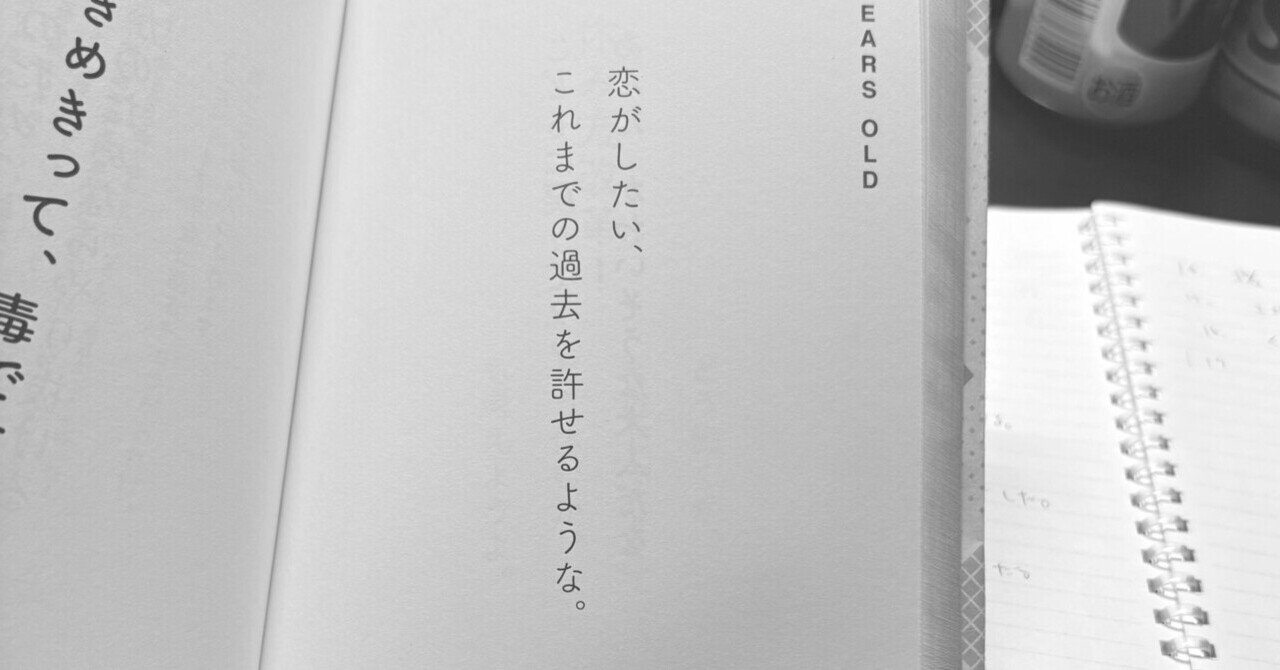 EARS OLD
恋がしたい、
これまでの過去を許せるような。
きめきって、
毒だ
お酒
した。